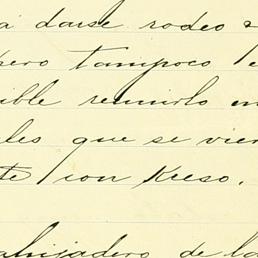 á darse rodeo
pero tampoco
ible reunirlo en
les que se vier
te con Kreso.
ahijadero de la